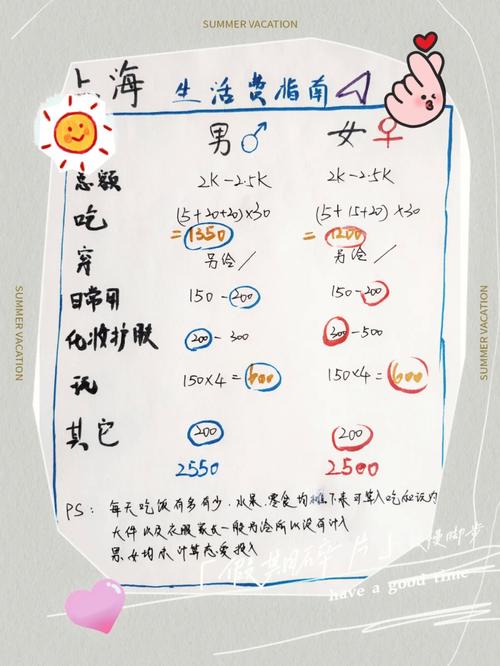 SUMMER VACATION
上海 生活费指南
男♂ 女♀
总额 2K-2.5K 2K-2.5K
吃 (15+20+20)×30 (5+15+20)×30
=1350 =1200
穿 另给/ 另给/
日常用 150-200 150-200
化妆护肤 200-300 300-500
玩 150×4=600 150×4=600
其它 200 200
2550 2500
PS: 每天吃饭有多有少,水果、零食均摊下来可算入吃和玩内
大件以及衣服家长一般另给所以没有计入
男女均未计算恋爱投入
「假期碎片」 慢脚步
have a good time
SUMMER VACATION
SUMMER VACATION